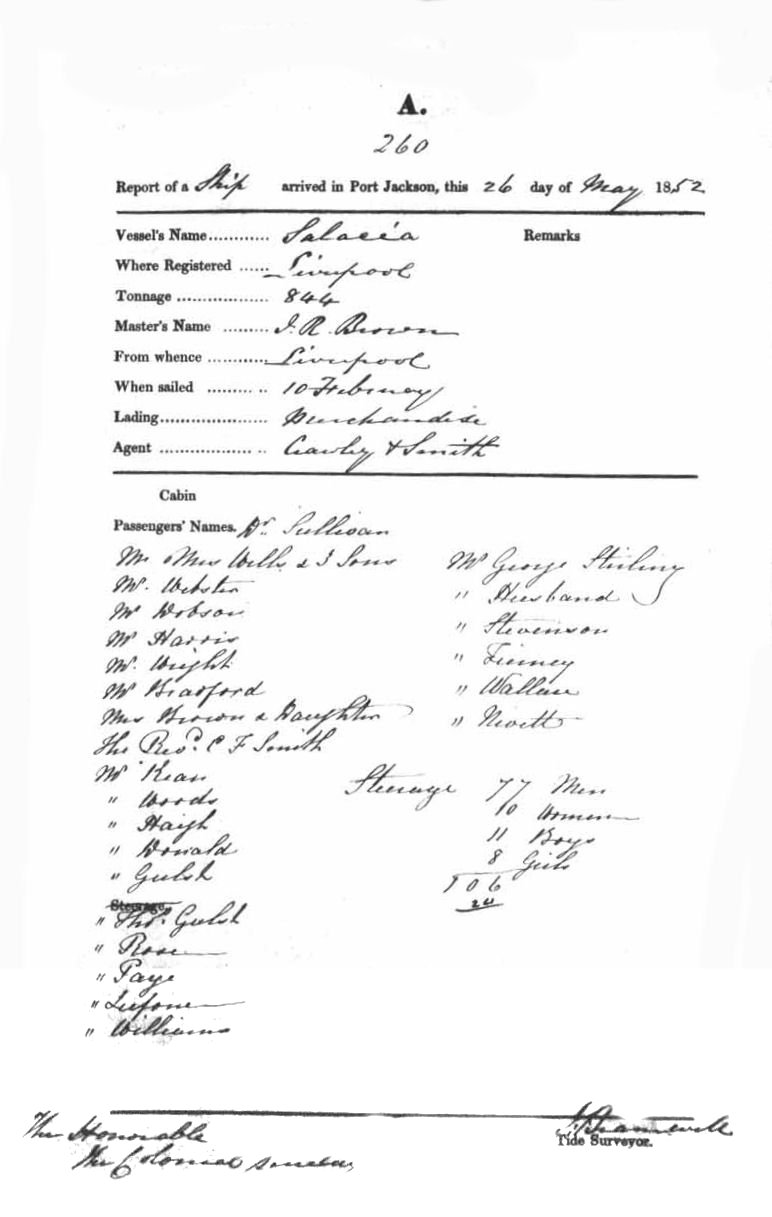 A.
260
Report of a Ship arrived in Port Jackson, this 26 day of May 1852
Vessel's Name............ Salacia Remarks
Where Registered ...... Liverpool
Tonnage .................. 844
Master's Name ......... J. R. Brown
From whence ............ Liverpool
When sailed ......... .. 10 February
Lading..................... Merchandise
Agent .................. .. Crawley & Smith
Cabin
Passengers' Names. Dr. Sullivan
Mr Mrs Wells & 3 Sons
Mr. Webster
Mr Dobson
Mr Harris
Mr. Wright
Mr Bradford
Mrs Brown & Daughter
The Revd. C F Smith
Mr Kean
" Woods
" Haigh
" Donald
" Gulst
Steerage.
" Thos. Gulst
" Rose
" Faye
"
" Williams
Mr George Stirling
" Husband
" Stevenson
" Finney
" Wallace
" Nevett
Steerage 77 Men
10 Women
11 Boys
8 Girls
106
The Honorable
The Colonial
Tide Surveyor.